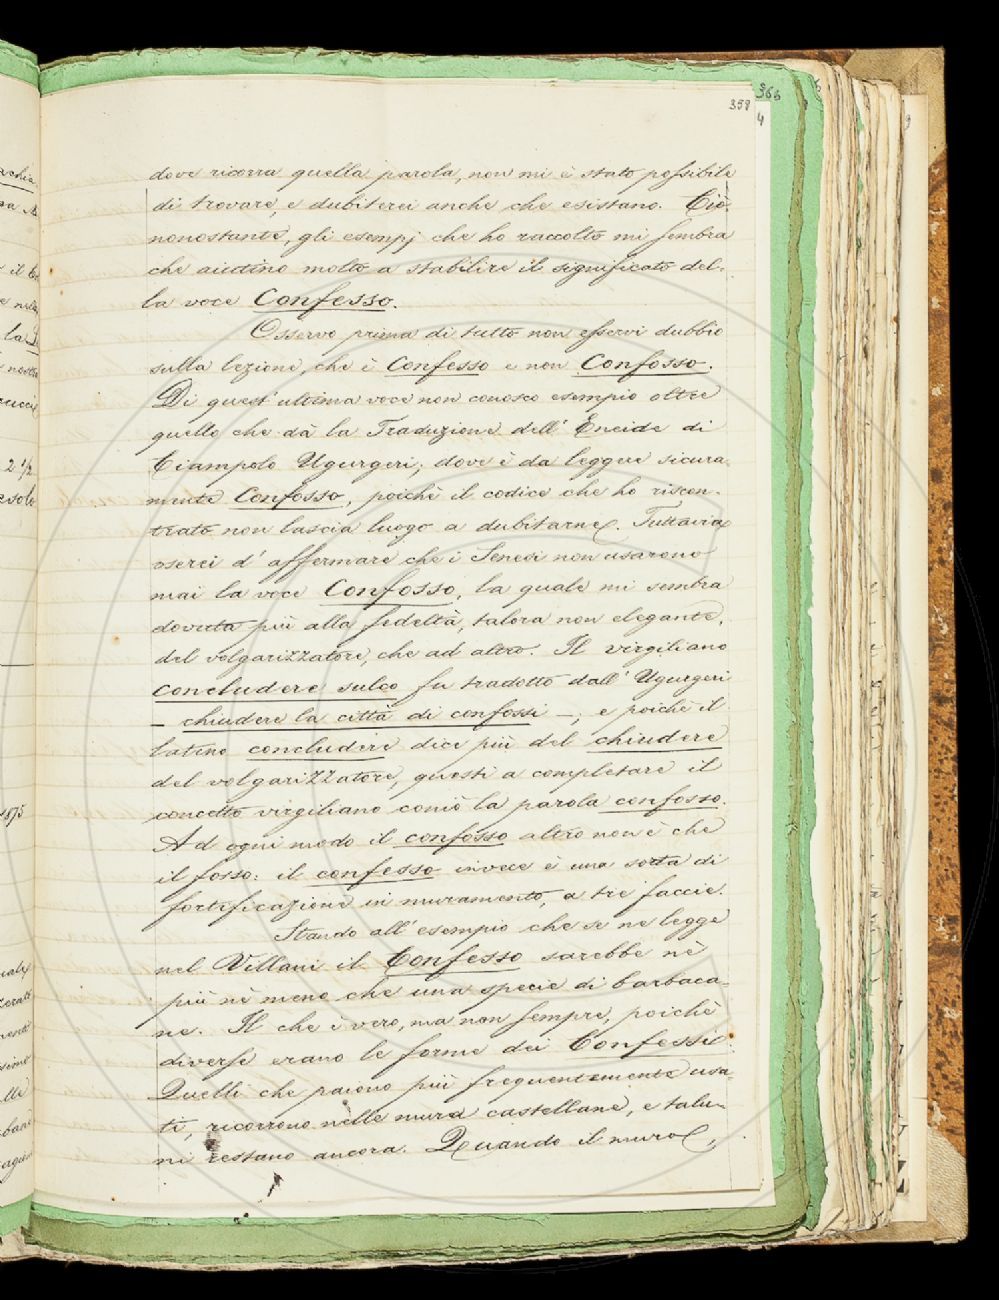 366
398
4
dove ricorra quella parola, non mi è stato possibile
di trovare, e dubiterei anche che esistano. Ciò
nonostante, gli esempj che ho raccolto mi sembra
che aiutino molto a stabilire il significato del-
la voce Confesso.
Osservo prima di tutto non esservi dubbio
sulla lezione, che è Confesso e non Confosso.
Di quest'ultima voce non conosco esempio oltre
quello che dà la Traduzione dell'Eneide di
Ciampolo Ugurgeri; dove è da leggere sicura
mente Confosso, poichè il codice che ho riscon-
trato non lascia luogo a dubitarne. Tuttavia
oserei d'affermare che i Senesi non usarono
mai la voce Confosso, la quale mi sembra
dovuta più alla fedeltà, talora non elegante,
del volgarizzatore, che ad altro. Il virgiliano
concludere sulco fu tradotto dall'Ugurgeri
— chiudere la città di confossi —; e poichè il
latino concludere dice più del chiudere
del volgarizzatore, questi a completare il
concetto virgiliano coniò la parola confosso.
Ad ogni modo il confosso altro non è che
il fosso: il confesso invece è una sorta di
fortificazione in muramento, a tre faccie.
Stando all'esempio che se ne legge
nel Villani il Confesso sarebbe nè
più nè meno che una specie di barbaca-
ne. Il che è vero, ma non sempre, poichè
diverse erano le forme dei Confessi.
Quelli che paiono più frequentemente usa-
ti, ricorrono nelle mura castellane, e talu-
ni restano ancora. Quando il muro,